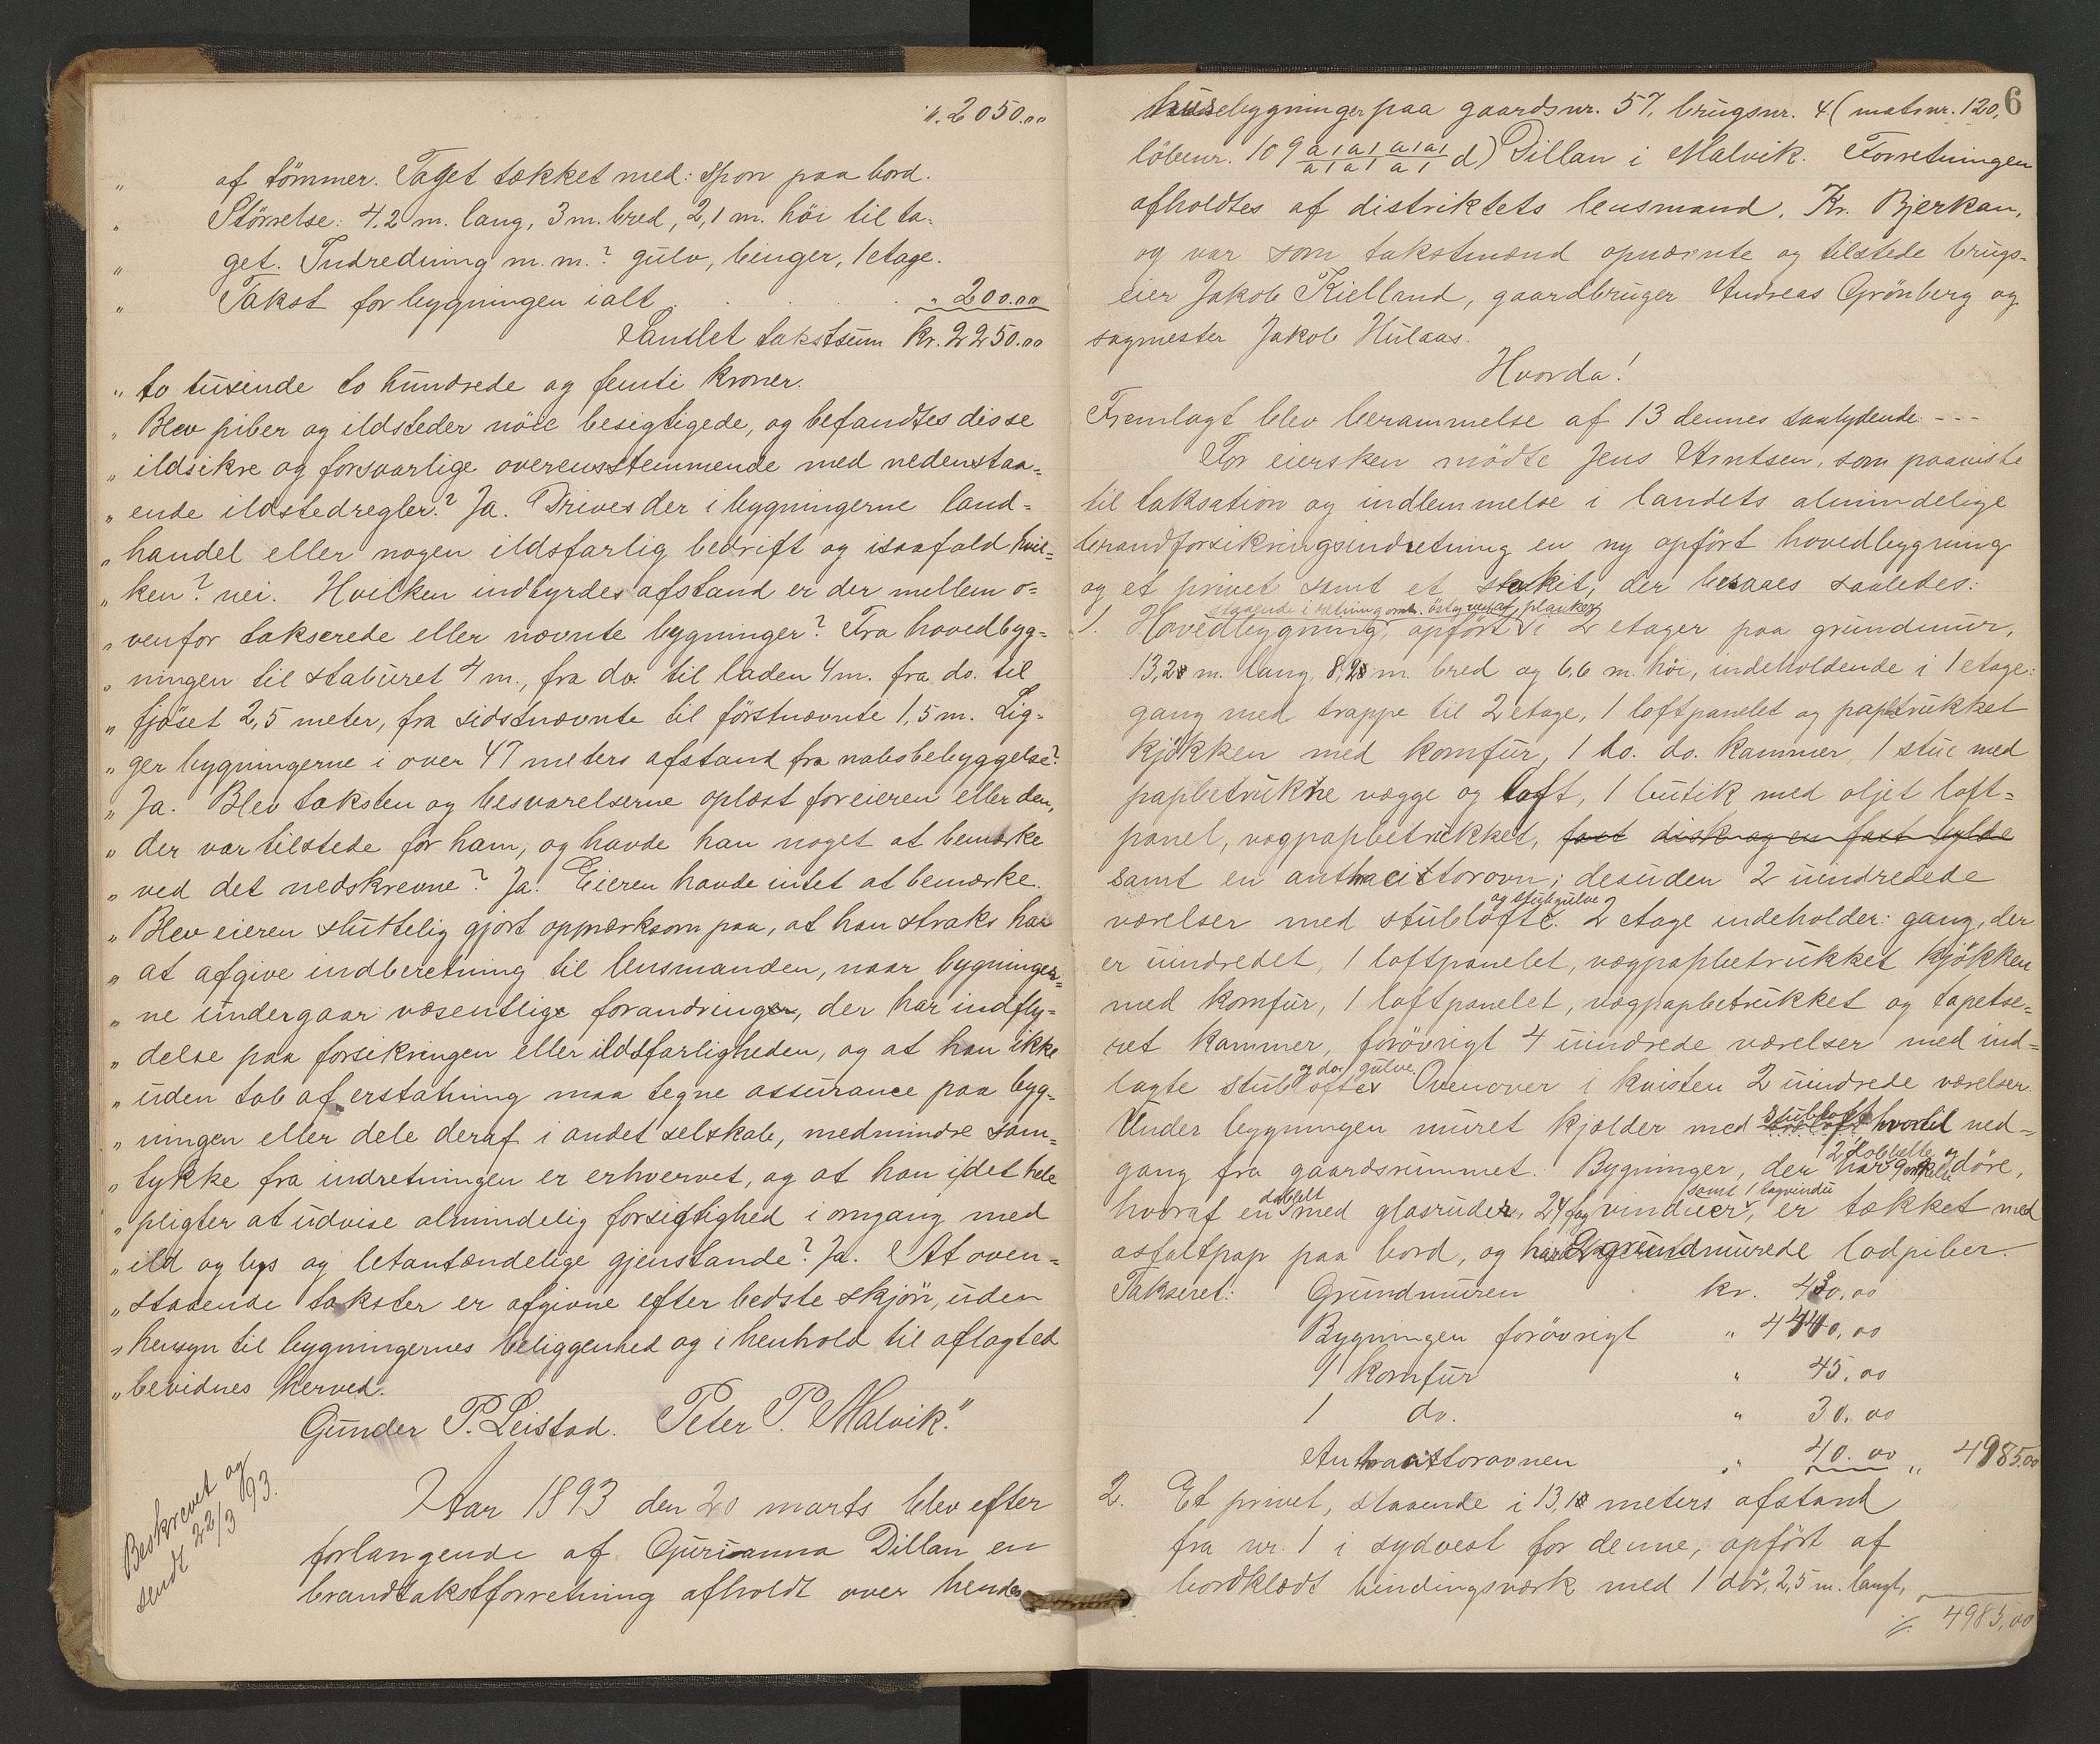 ". 2050.00
" af tömmer. Taget tækket med: Spon paa bord.
" Störrelse: 4,2 m. lang, 3 m. bred, 2,1 m. höi til ta-
" get. Indredning m. m.? gulv, binger, 1 etage.
" Takst for bygningen ialt . . . . . " 200.00
Samlet takstsum kr. 2250.00
" to tusinde to hundrede og femti kroner.
" Blev piber og ildsteder nöie besigtigede, og befandtes disse
" ildsikre og forsvarlige overensstemmende med nedenstaa-
" ende ildstedregler? Ja. Drives der i bygningerne land-
" handel eller nogen ildsfarlig bedrift og isaafald hvil-
" ken? nei. Hvilken indbyrdes afstand er der mellem o-
" venfor takserede eller nævnte bygninger? Fra hovedbyg-
" ningen til staburet 4 m., fra do. til laden 4 m. fra do. til
" fjöset 2,5 meter, fra sidstnævnte til förstnævnte 1,5 m. Lig-
" ger bygningerne i over 47 meters afstand fra nabobebyggelse?
" Ja. Blev taksten og besvarelserne oplæst for eieren eller den,
" der var tilstede for ham, og havde han noget at bemærke
" ved det nedskrevne? Ja. Eieren havde intet at bemærke.
" Blev eieren sluttelig gjort opmærksom paa, at han straks har
" at afgive indberetning til lensmanden, naar bygninger-
" ne undergaar væsentlige forandringer, der har indfly-
" delse paa forsikringen eller ildsfarligheden, og at han ikke
" uden tab af erstatning maa tegne assurance paa byg-
" ningen eller dele deraf i andet selskab, medmindre sam-
" tykke fra indretningen er erhvervet, og at han i det hele
" pligter at udvise almindelig forsigtighed i omgang med
" ild og lys og letantændelige gjenstande? Ja. At oven-
" staaende takster er afgivne efter bedste skjön, uden
" hensyn til bygningernes beliggenhed og i henhold til aflagt ed
" bevidnes herved.
Gunder P. Leistad. Peter P. Malvik."
Beskrevet og
sendt 22/3 93.
Aar 1893 den 20 marts blev efter
forlangende af Gurianna Dillan en
brandtakstforretning afholdt over hendes
6
husebygninger paa gaardsnr. 57, brugsnr. 4 (matr. nr. 120,
löbenr. 109 a1 a1 a1 a1 / a1 a1 a1 d) Dillan i Malvik. Forretningen
afholdtes af distriktets lensmand, Kr. Bjerkan,
og var som takstmænd opnævnte og tilstede brugs-
eier Jakob Kielland, gaardbruger Andreas Grönberg og
sagmester Jakob Hulaas.
Hvorda!
Fremlagt blev berammelse af 13 dennes saalydende: ---
For eiersken mödte Jens Arntsen, som paaviste
til taksation og indlemmelse i landets almindelige
brandforsikringsindretning en ny opfört hovedbygning
og et privet samt et stakit, der besaaes saaledes:
staaende i retning omtr. öst og vest af planker
1. Hovedbygning, opfört i 2 etager paa grundmur,
13,28 m. lang, 8,28 m. bred og 6,6 m. höi, indeholdende i 1 etage:
gang med trappe til 2 etage, 1 loftpanelet og paptrukket
kjökken med komfur, 1 do. do. kammer, 1 stue med
papbetrukne vægge og loft, 1 butik med oljet loft-
panel, vægpapbetrukket, fast disk og en fast hylde
samt en anthracitovn; desuden 2 uindredede
og stubgulve
værelser med stublofte. 2 etage indeholder: gang, der
er uindredet, 1 loftpanelet, vægpapbetrukket kjökken
med komfur, 1 loftpanelet, vægpapbetrukket og tapetse-
ret kammer, forövrigt 4 uindrede værelser med ind-
og do. gulve.
lagte stublofter Ovenover i kvisten 2 uindrede værelser.
Under bygningen muret kjælder med stubloft hvortil ned-
2 dobbelte og
gang fra gaardsrummet. Bygninger, der har 9 enkelte döre,
dobbelt samt 1 tagvindu
hvoraf en med glasruder, 24 fag vinduer, er tækket med
asfaltpap paa bord, og har 2 grundmurede lodpiber.
Takseret: Grundmuren kr. 430,00
Bygningen forövrigt " 4440,00
1 komfur " 45,00
1 do. " 30,00
Anthracitovnen " 40,00 " 4985,00
2. Et privet, staaende i 13,18 meters afstand
fra nr. 1 i sydvest for denne, opfört af
bordklædt bindingsværk med 1 dör, 2,5 m. langt,
4985,00